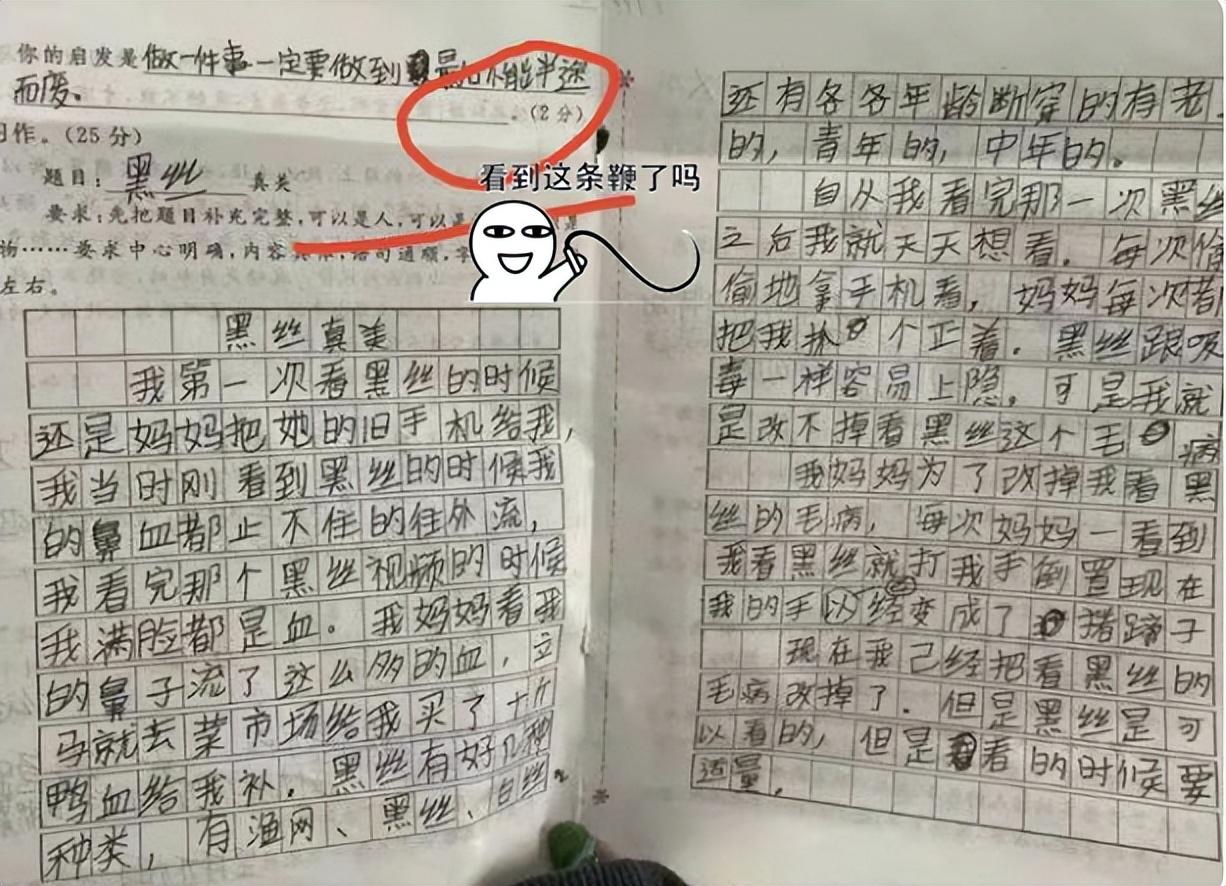 你的启发是做一件事一定要做到最后不能半途
而废。
。(2分)
习作。(25分)
题目:黑丝 真美
要求:先把题目补充完整,可以是人,可以是 是
物……要求中心明确,内容具体,语句通顺,字
左右。
看到这条鞭了吗
黑丝真美
我第一次看黑丝的时候
还是妈妈把她的旧手机给我,
我当时刚看到黑丝的时候我
的鼻血都止不住的往外流,
我看完那个黑丝视频的时候
我满脸都是血。我妈妈看我
的鼻子流了这么多的血,立
马就去菜市场给我买了十斤
鸭血给我补。黑丝有好几种
种类,有渔网、黑丝、白丝
还有各各年龄断穿的有老
的,青年的,中年的。
自从我看完那一次黑丝
之后我就天天想看。每次偷
偷地拿手机看,妈妈每次都
把我抓个正着。黑丝跟吸
毒一样容易上隐,可是我就
是改不掉看黑丝这个毛病
我妈妈为了改掉我看黑
丝的毛病,每次妈妈一看到
我看黑丝就打我手倒置现在
我的手以经变成了猪蹄子
现在我己经把看黑丝的
毛病改掉了.但是黑丝是可
以看的,但是看的时候要
适量.